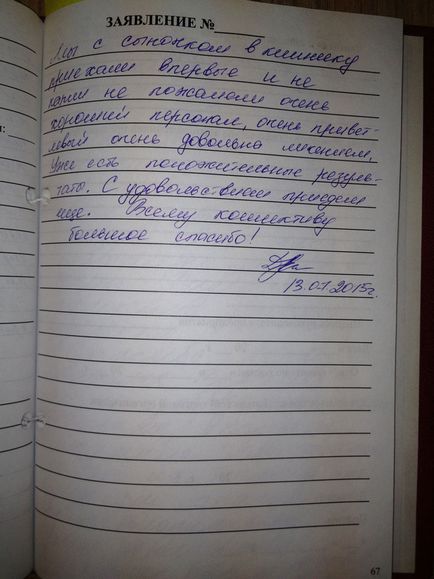 ЗАЯВЛЕНИЕ №
Мы с сыночком в клинику
приехали впервые и не
капли не пожалели очень
хороший персонал, очень привет-
ливый очень довольна лечением,
Уже есть положительные резуль-
таты. С удовольствием приедем
еще. Всему коллективу
большое спасибо!
13.07.2015г.
67